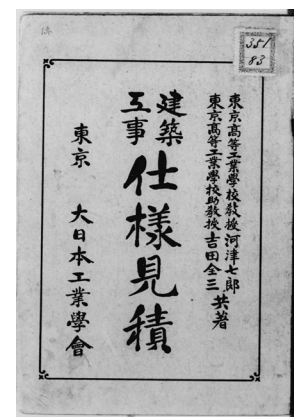 351
83
東京高等工業學校教授河津七郎
東京高等工業學校助教授吉田全三
共著
建築
工事
仕様見積
東京 大日本工業學會